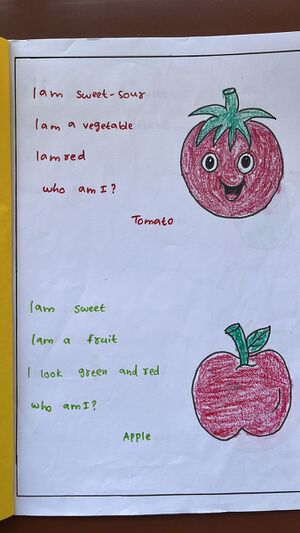 I am sweet-sour
I am a vegetable
I am red
who am I?
Tomato
I am sweet
I am a fruit
I look green and red
who am I?
Apple